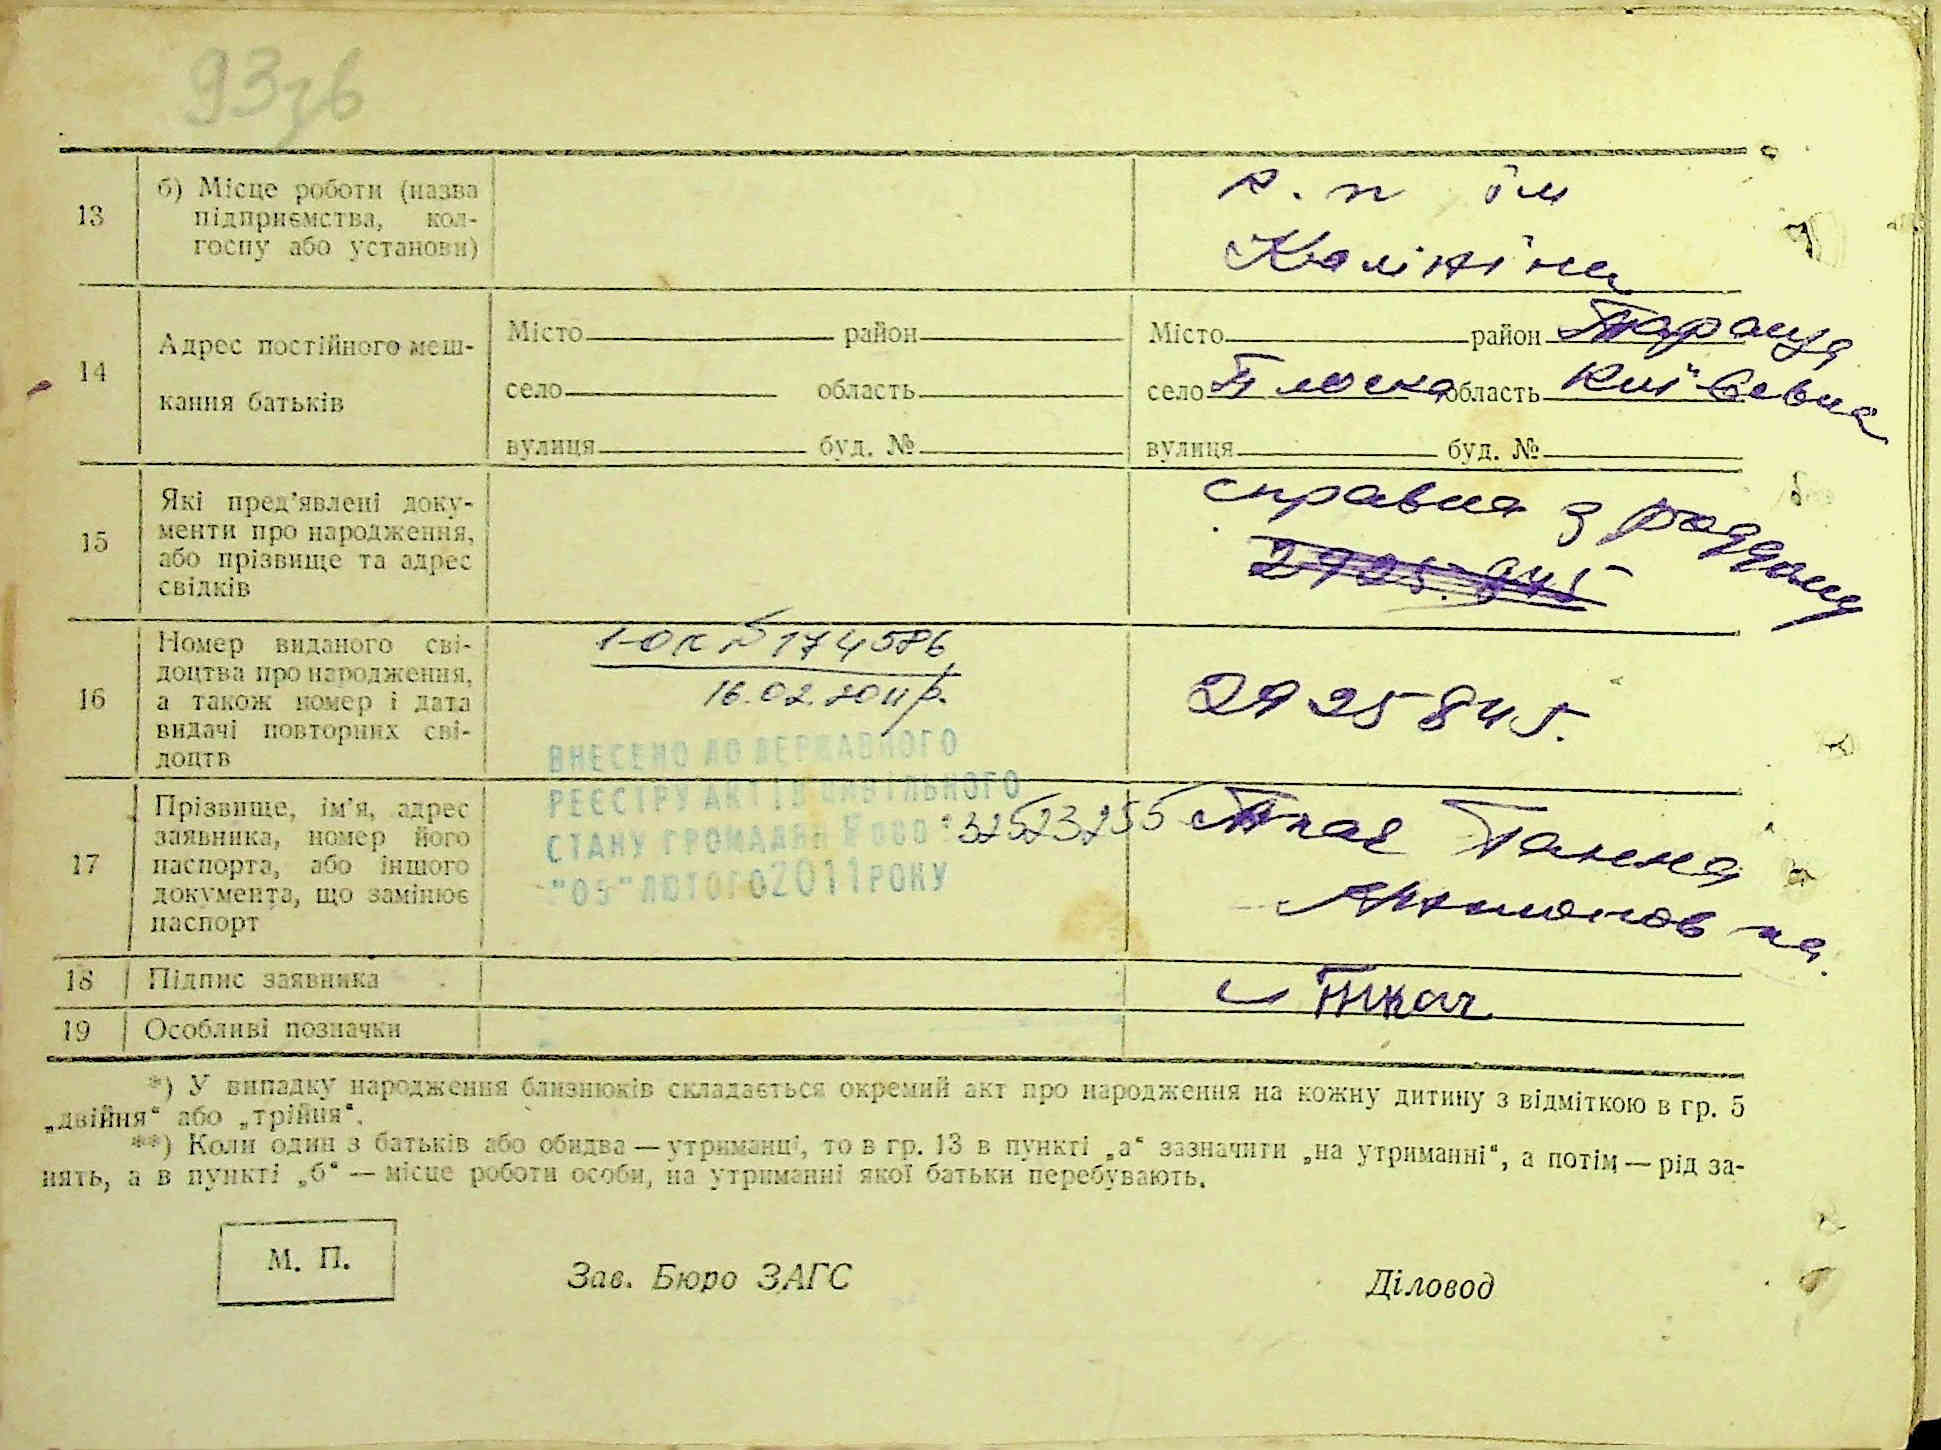 93зв
13
б) Місце роботи (назва
підприємства, кол-
госпу або установи)
к. п ім
Калініна
14
Адрес постійного меш-
кання батьків
Місто район
село область
вулиця буд. №
Місто район Тараща
село Плоска область Київська
вулиця буд. №
15
Які пред'явлені доку-
менти про народження,
або прізвище та адрес
свідків
справка з роддому
16
Номер виданого сві-
доцтва про народження,
а також номер і дата
видачі повторних сві-
доцтв
1-ОК № 174586
16.02.2011р.
2925845.
ВНЕСЕНО ДО ДЕРЖАВНОГО
РЕЄСТРУ АКТІВ ЦИВІЛЬНОГО
СТАНУ ГРОМАДЯН 32523255
"05" ЛЮТОГО 2011 РОКУ
17
Прізвище, ім'я, адрес
заявника, номер його
паспорта, або іншого
документа, що замінює
паспорт
Ткач Ганна
18
Підпис заявника
Ткач
19
Особливі позначки
*) У випадку народження близнюків складається окремий акт про народження на кожну дитину з відміткою в гр. 5
„двійня“ або „трійня“.
**) Коли один з батьків або обидва — утриманці, то в гр. 13 в пункті „а“ зазначити „на утриманні“, а потім — рід за-
нять, а в пункті „б“ — місце роботи особи, на утриманні якої батьки перебувають.
М. П.
Зав. Бюро ЗАГС
Діловод